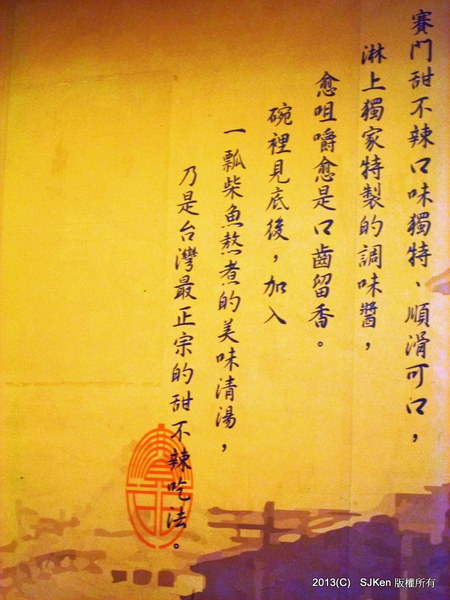 賽門甜不辣口味獨特、順滑可口，
淋上獨家特製的調味醬，
愈咀嚼愈是口齒留香。
碗裡見底後，加入
一瓢柴魚熬煮的美味清湯，
乃是台灣最正宗的甜不辣吃法。
2013(C) SJKen 版權所有